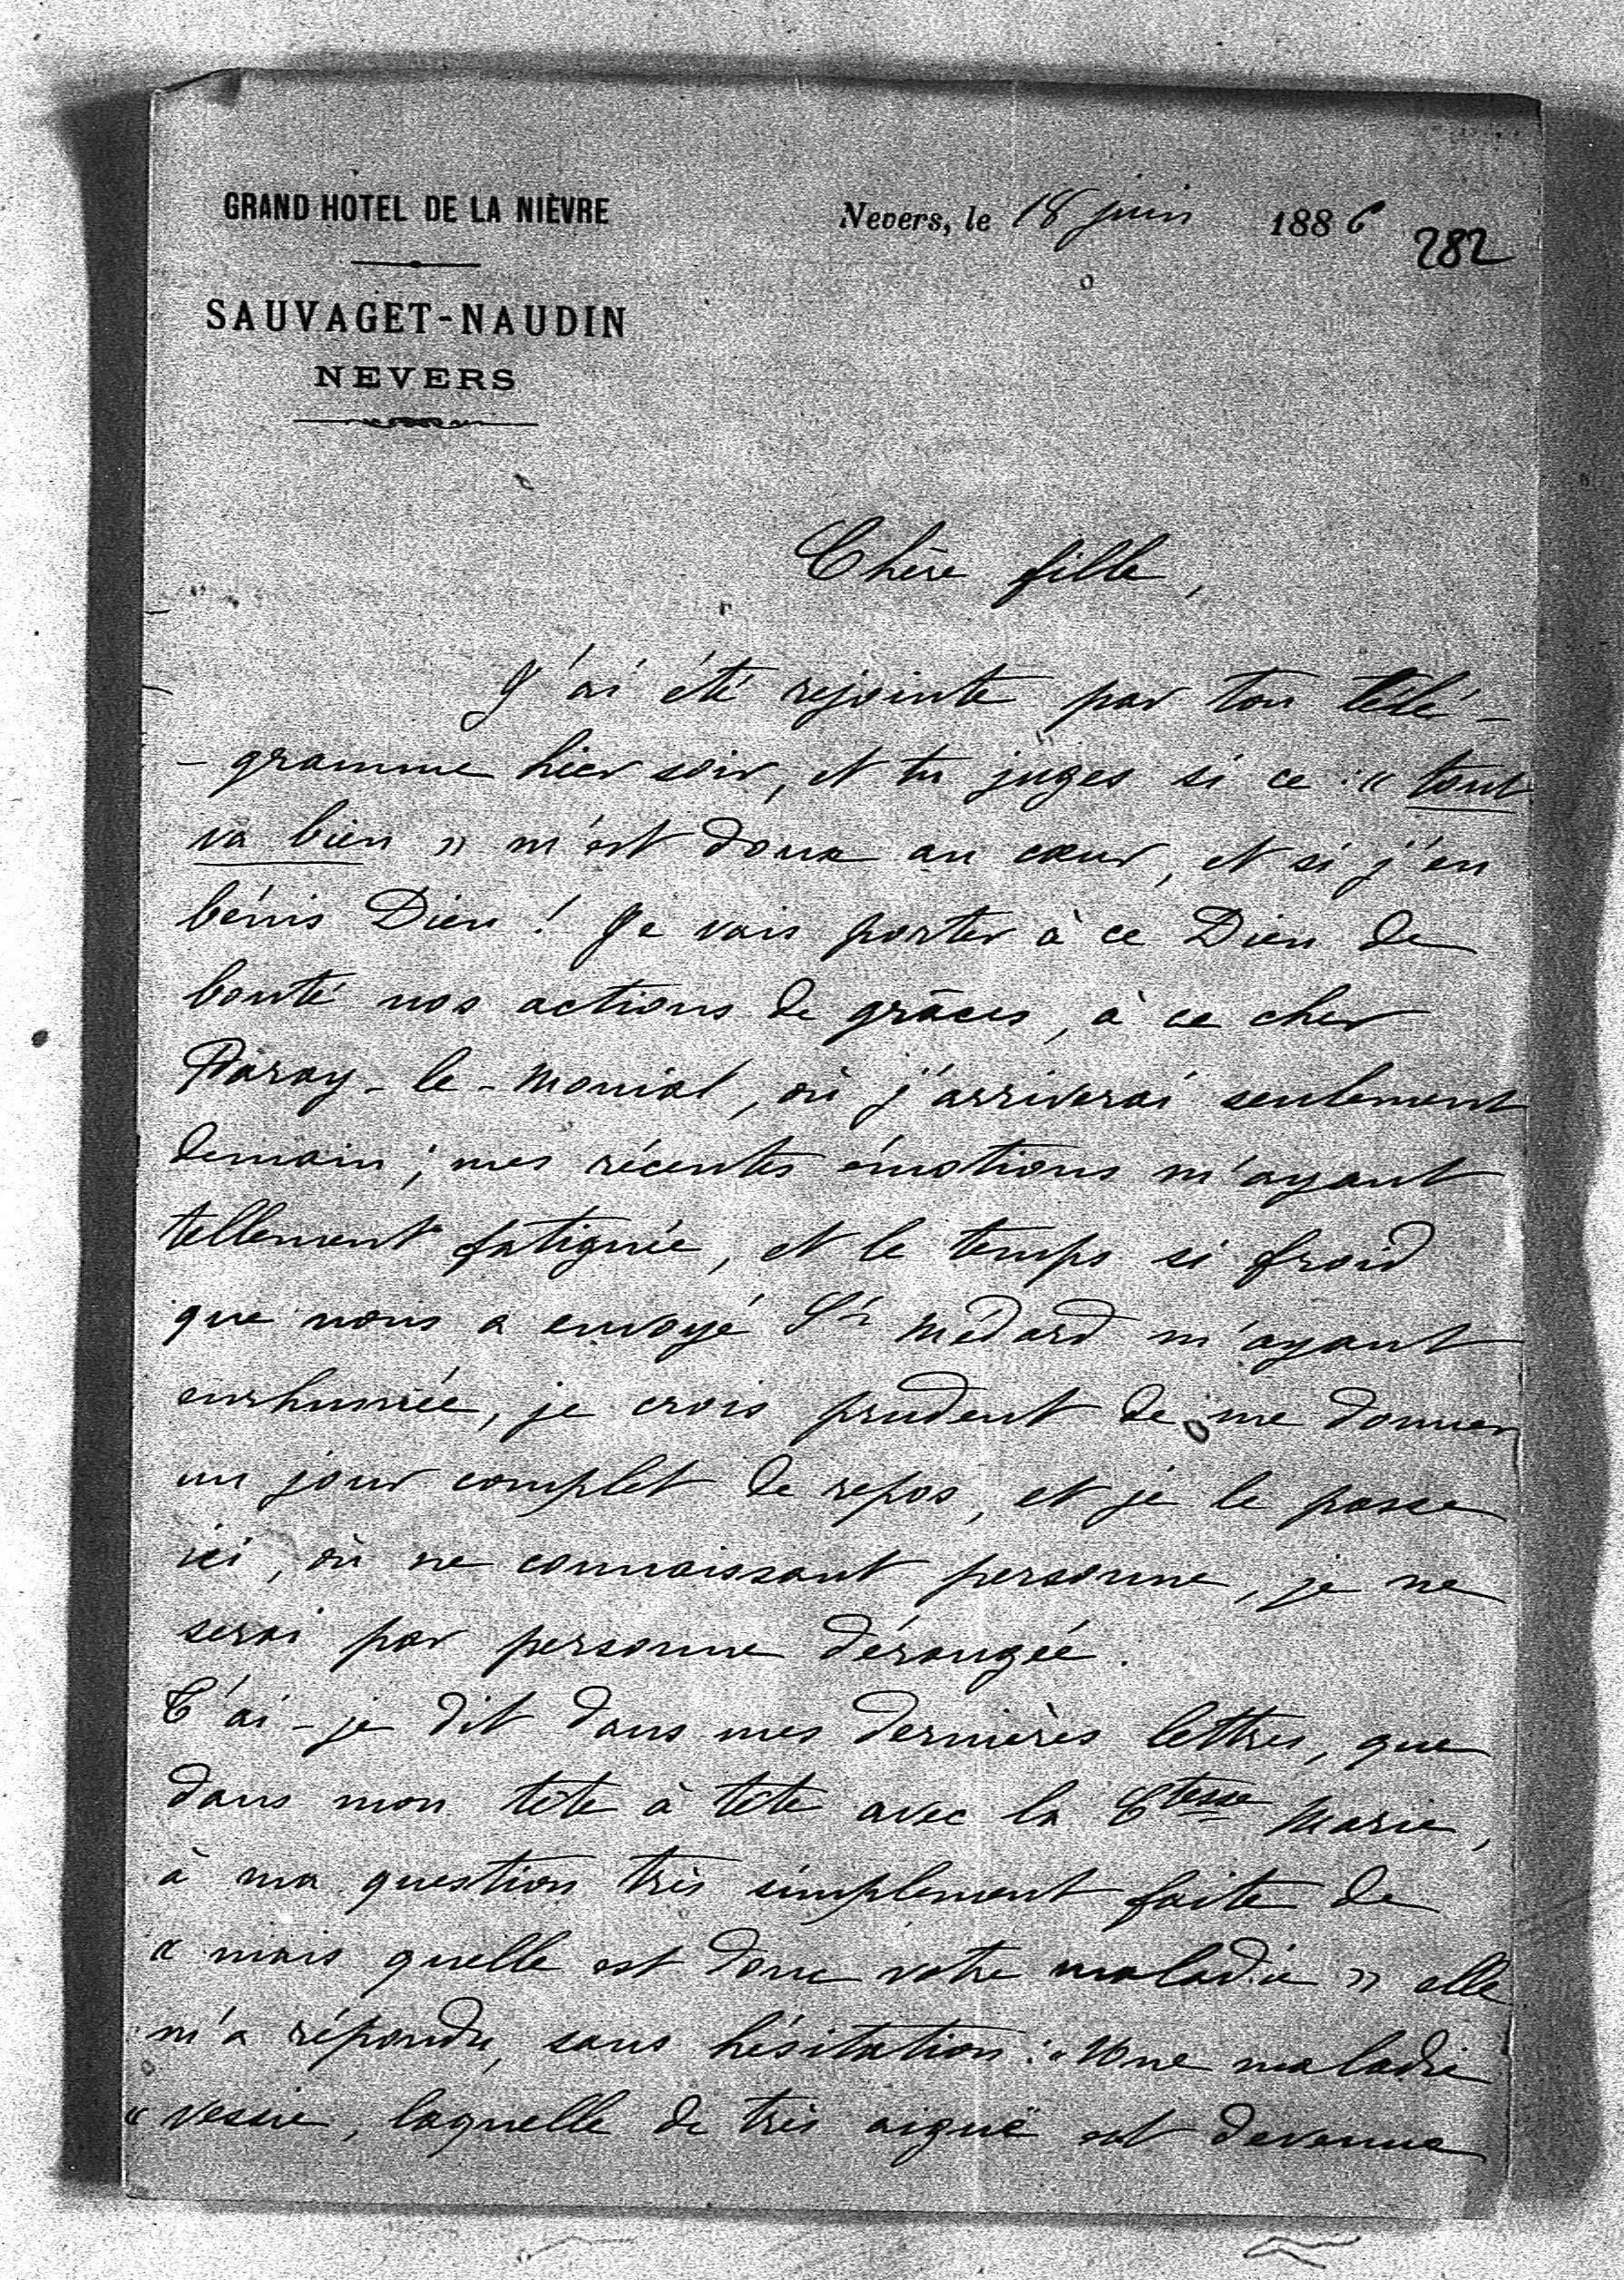 GRAND HOTEL DE LA NIÈVRE
SAUVAGET-NAUDIN
NEVERS
Nevers, le 18 juin 1886
282
Chère fille,
J'ai été rejointe par ton télé-
-gramme hier soir, et tu juges si ce : « tout
va bien » m'est doux au cœur, et si j'en
bénis Dieu ! Je vais porter à ce Dieu de
bonté nos actions de grâces, à ce cher
Paray-le-Monial, où j'arriverai seulement
demain ; mes récentes émotions m'ayant
tellement fatiguée, et le temps si froid
que nous a envoyé St Médard m'ayant
enrhumée, je crois prudent de me donner
un jour complet de repos, et je le passe
ici, où ne connaissant personne, je ne
serai par personne dérangée.
T'ai-je dit dans mes dernières lettres, que
dans mon tête à tête avec la Ctesse Marie,
à ma question très simplement faite de
« mais quelle est donc votre maladie » elle
m'a répondu, sans hésitation : « Une maladie
« vessie, laquelle de très aiguë est devenue